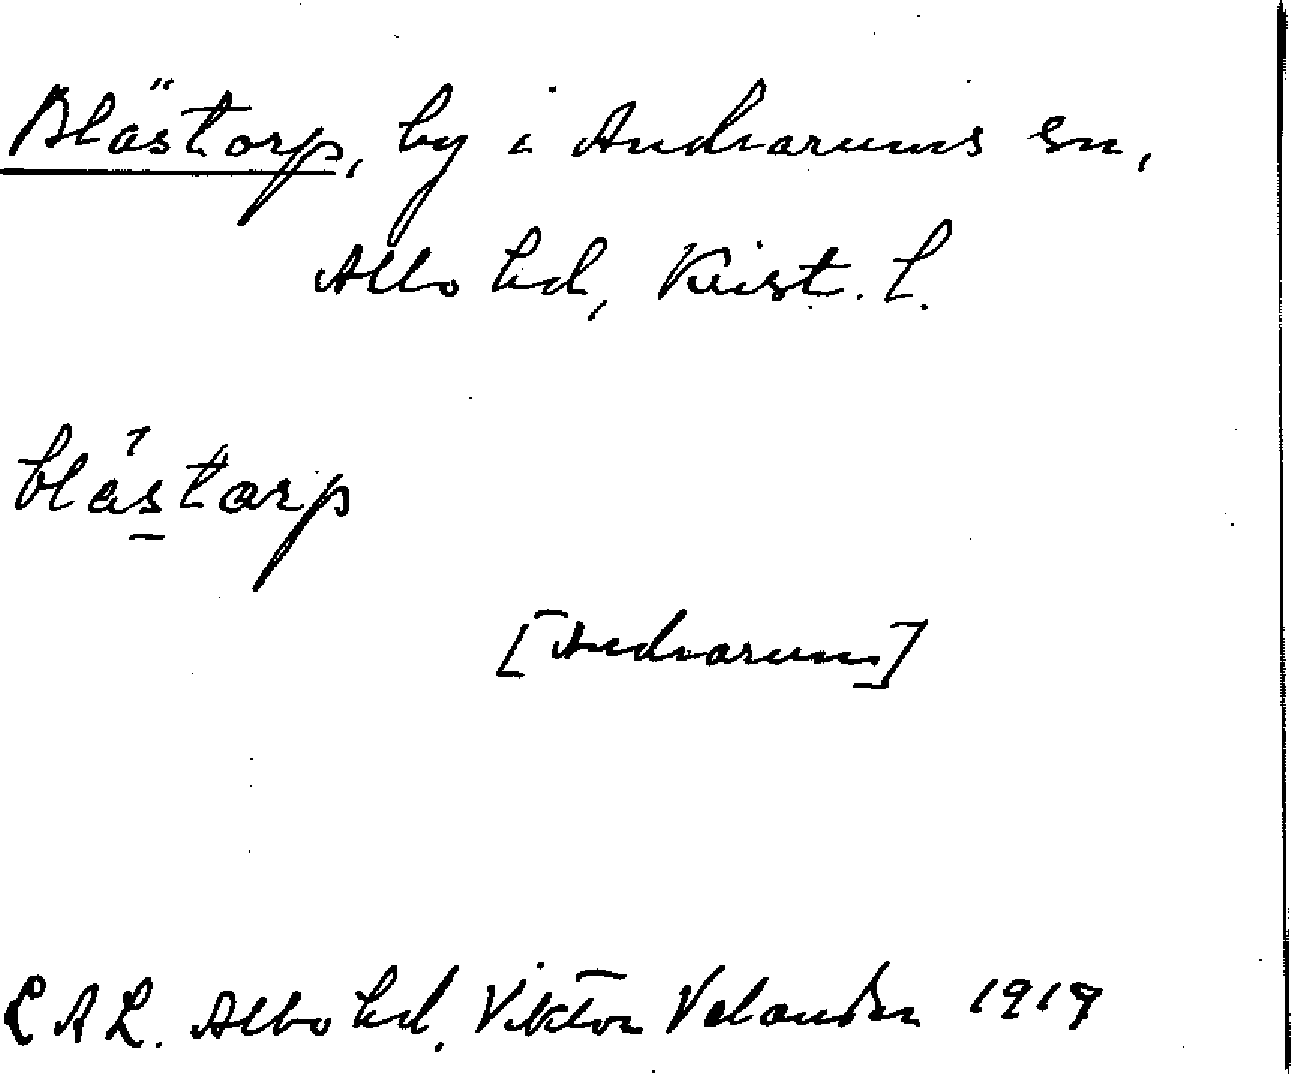 Blästorp, by i Andrarums sn,
Albo hd, Krist. l.
blástorp
[Andrarum]
L A L. Albo hd. Viktor Velander 1919